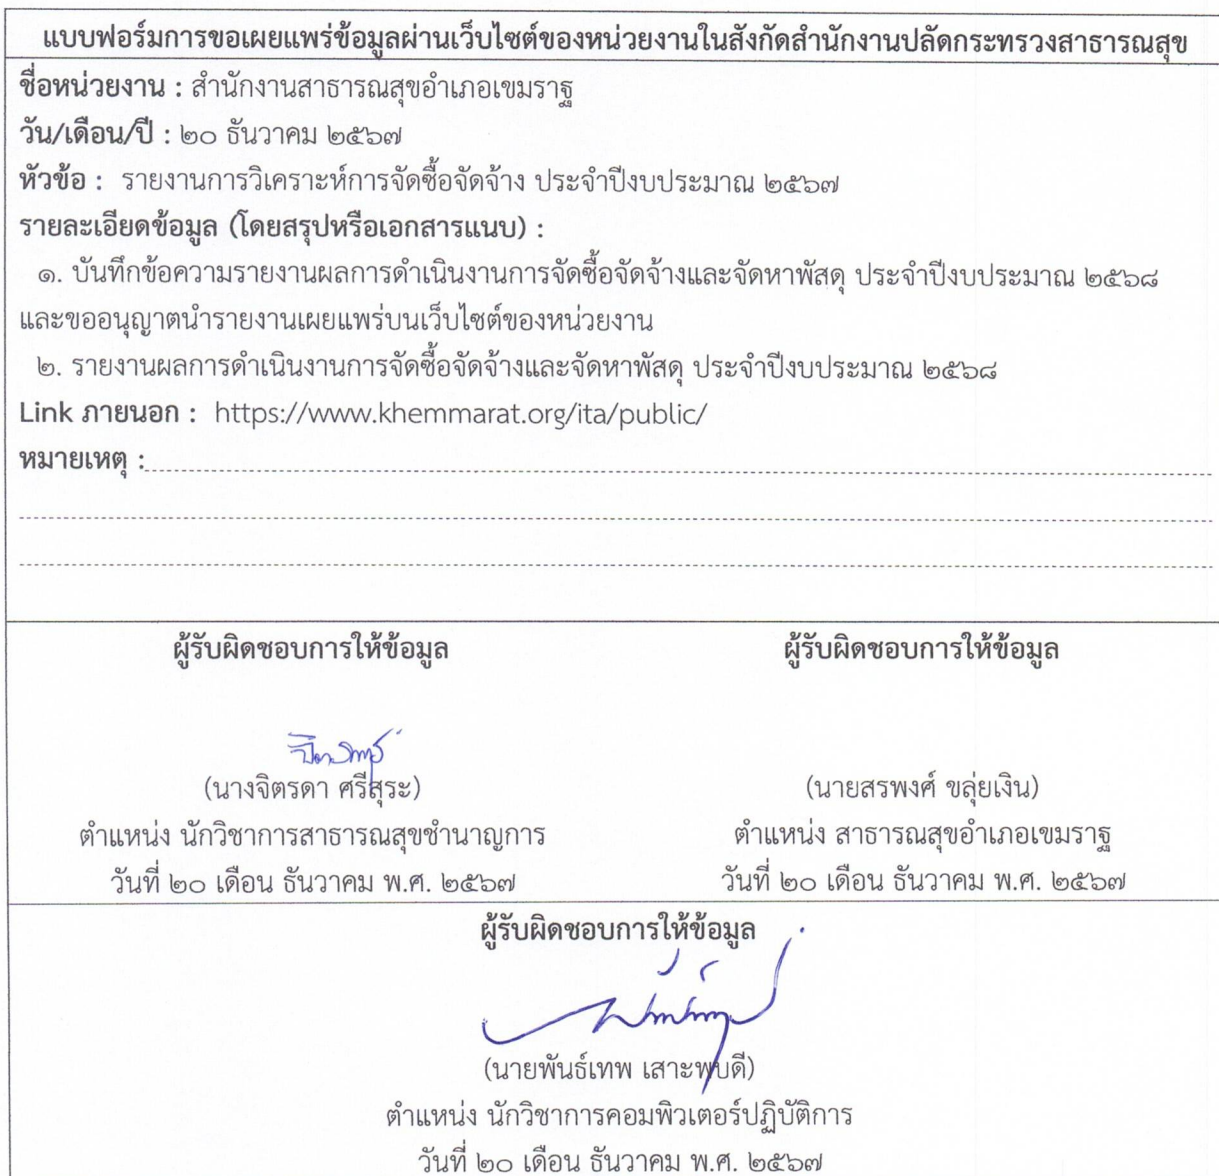 แบบฟอร์มการขอเผยแพร่ข้อมูลผ่านเว็บไซต์ของหน่วยงานในสังกัดสำนักงานปลัดกระทรวงสาธารณสุข
ชื่อหน่วยงาน : สำนักงานสาธารณสุขอำเภอเขมราฐ
วัน/เดือน/ปี : ๒๐ ธันวาคม ๒๕๖๗
หัวข้อ : รายงานการวิเคราะห์การจัดซื้อจัดจ้าง ประจำปีงบประมาณ ๒๕๖๗
รายละเอียดข้อมูล (โดยสรุปหรือเอกสารแนบ) :
๑. บันทึกข้อความรายงานผลการดำเนินงานการจัดซื้อจัดจ้างและจัดหาพัสดุ ประจำปีงบประมาณ ๒๕๖๘
และขออนุญาตนำรายงานเผยแพร่บนเว็บไซต์ของหน่วยงาน
๒. รายงานผลการดำเนินงานการจัดซื้อจัดจ้างและจัดหาพัสดุ ประจำปีงบประมาณ ๒๕๖๘
Link ภายนอก : https://www.khemmarat.org/ita/public/
หมายเหตุ :
ผู้รับผิดชอบการให้ข้อมูล
(นางจิตรดา ศรีสุระ)
ตำแหน่ง นักวิชาการสาธารณสุขชำนาญการ
วันที่ ๒๐ เดือน ธันวาคม พ.ศ. ๒๕๖๗
ผู้รับผิดชอบการให้ข้อมูล
(นายสรพงศ์ ขลุ่ยเงิน)
ตำแหน่ง สาธารณสุขอำเภอเขมราฐ
วันที่ ๒๐ เดือน ธันวาคม พ.ศ. ๒๕๖๗
ผู้รับผิดชอบการให้ข้อมูล
(นายพันธ์เทพ เสาะพบดี)
ตำแหน่ง นักวิชาการคอมพิวเตอร์ปฏิบัติการ
วันที่ ๒๐ เดือน ธันวาคม พ.ศ. ๒๕๖๗